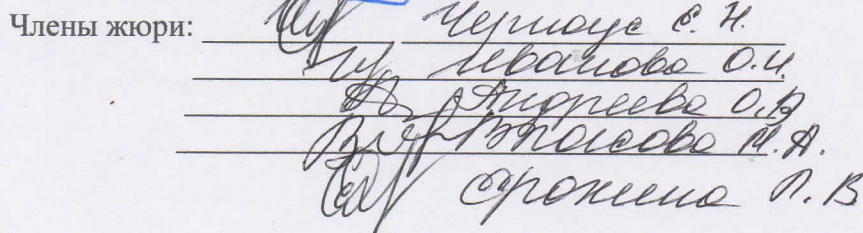 Члены жюри: Черноус С. Н.
Иванова О.И.
Андреева О.В
Власова И.А.
Сронина Л.В